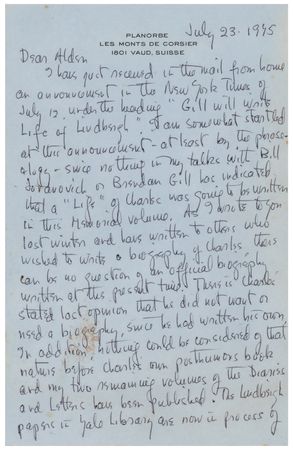 PLANORBE
LES MONTS DE CORSIER
1801 VAUD, SUISSE
July 23. 1975
Dear Alden
I have just received in the mail from home
an announcement in the New York Times of
July 12 under the heading "Gill will write
Life of Lindbergh". I am somewhat startled
at this announcement - at least by the phrase-
ology - since nothing in my talks with Bill
Jovanovich or Brendan Gill has indicated
that a "Life" of Charles was going to be written
in this Memorial volume. As I wrote to you
last winter and have written to others who
wished to write a biography of Charles there
can be no question of an official biography
written at this present time. There is Charles'
stated last opinion that he did not want or
need a biography, since he had written his own.
In addition, nothing could be considered of that
nature before Charles' own posthumous book
and my two remaining volumes of the Diaries
and Letters have been published. The Lindbergh
papers in Yale Library are now in process of